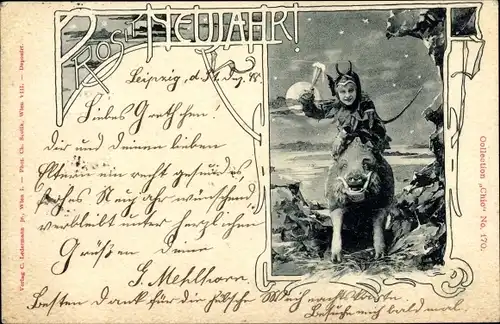 Prosit Neujahr!
Leipzig, d. 31. Dez. 98.
Liebes Gretchen!
Dir und deinen lieben
Eltern ein recht gesundes,
frohes Neujahr wünschend
verbleibt unter herzlichen
Grüßen Deine
G. Mehlhorn.
Besten Dank für die hübsche Weihnachtskarte
Besuche mich bald mal.
Verlag C. Ledermann jr., Wien I. — Phot. Ch. Scolik, Wien VIII. — Deponirt.
Collection „Chic“ No. 170.